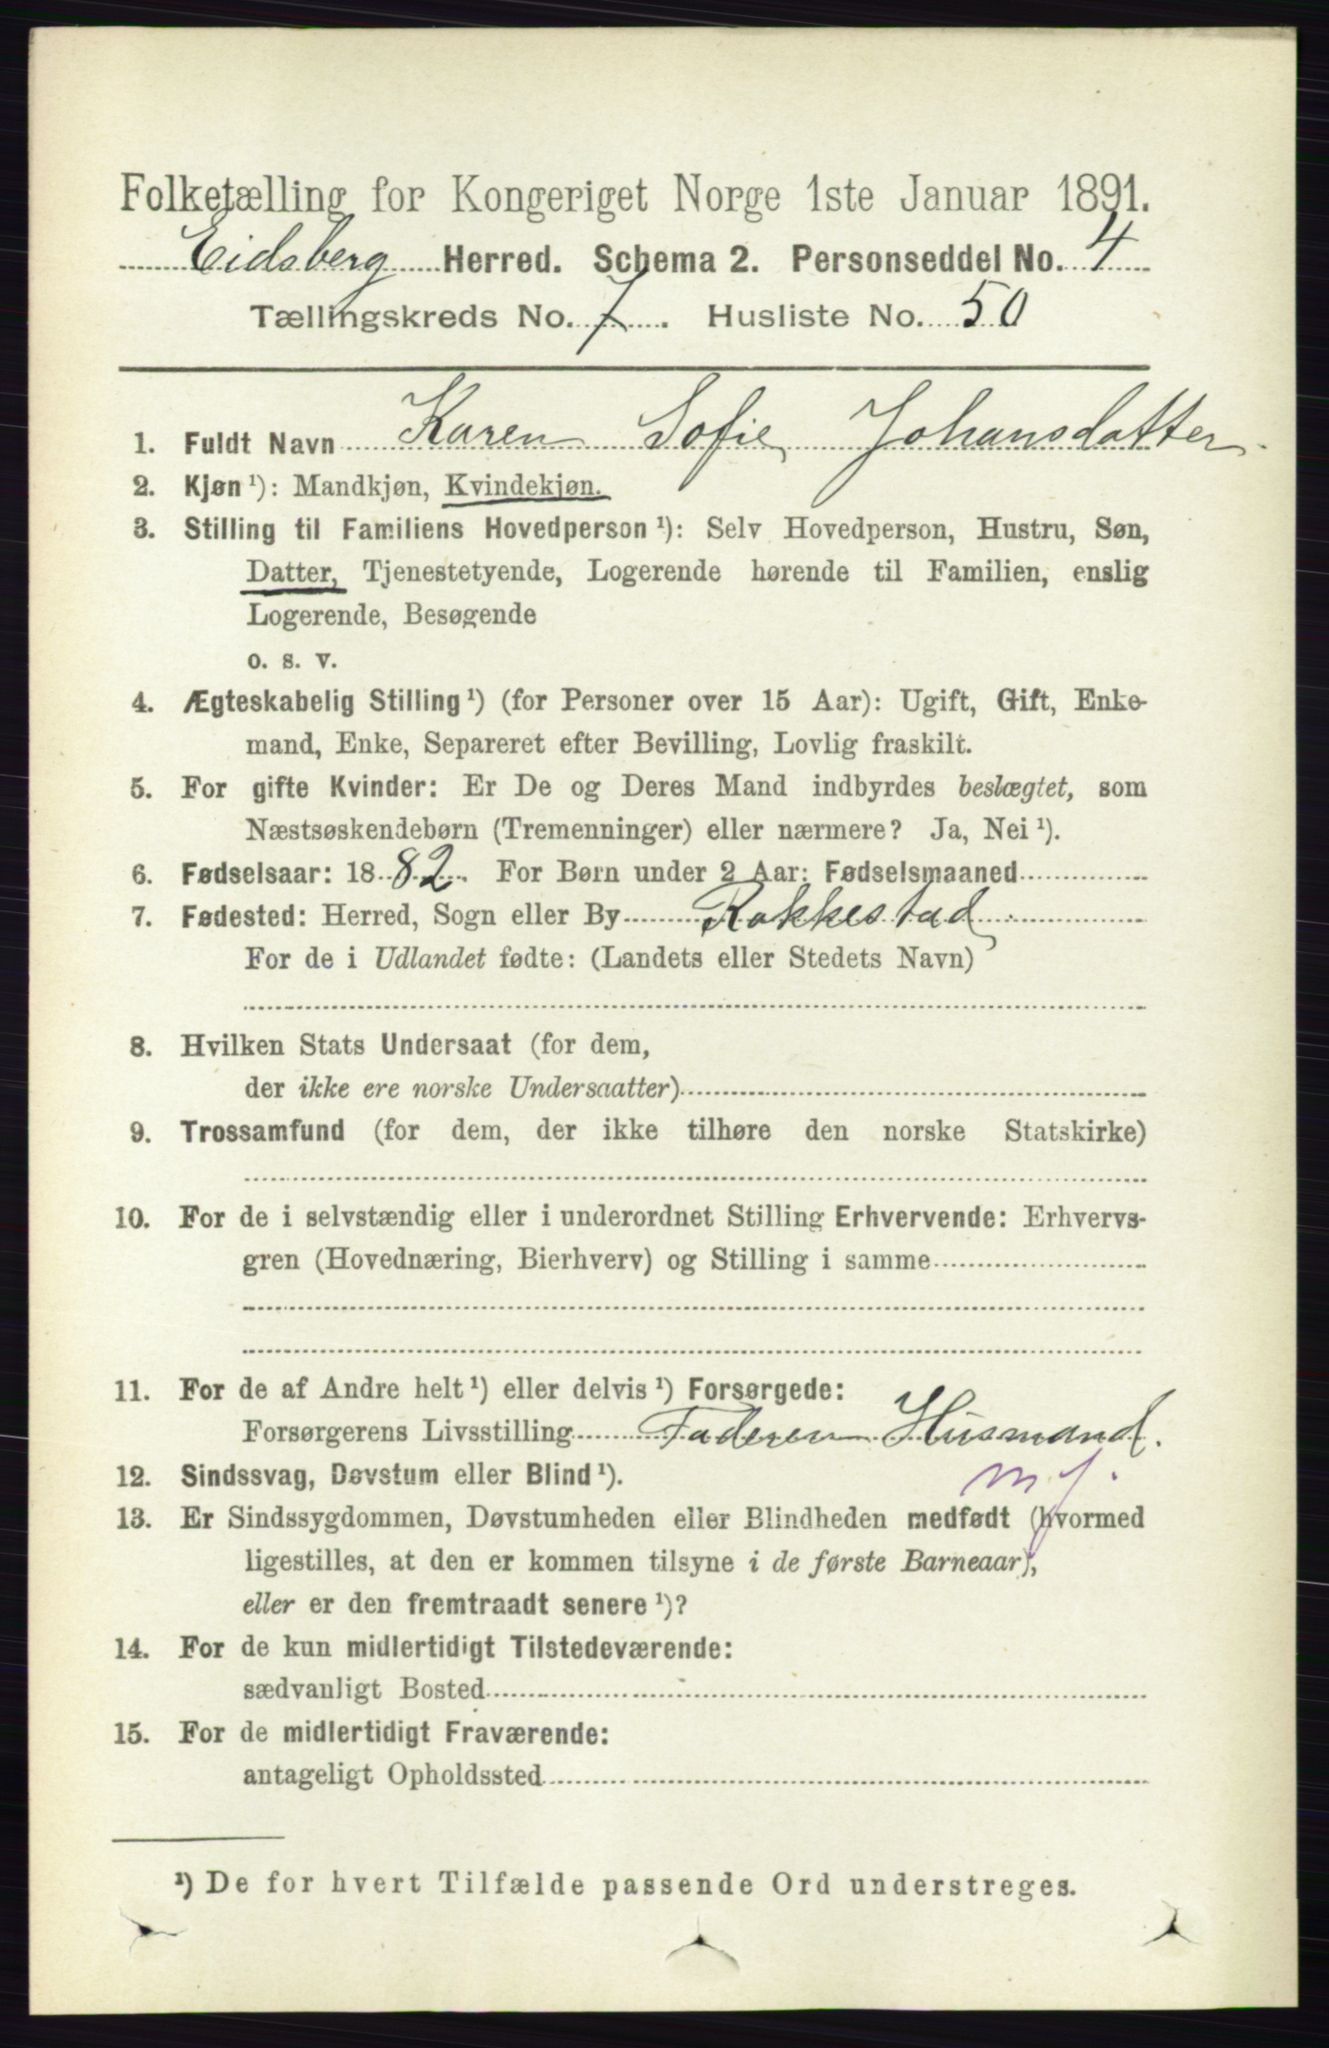 Folketælling for Kongeriget Norge 1ste Januar 1891.
Eidsberg Herred. Schema 2. Personseddel No. 4
Tællingskreds No. 7. Husliste No. 50
1. Fuldt Navn Karen Sofie Johansdatter.
2. Kjøn ¹): Mandkjøn, Kvindekjøn.
3. Stilling til Familiens Hovedperson ¹): Selv Hovedperson, Hustru, Søn,
Datter, Tjenestetyende, Logerende hørende til Familien, enslig
Logerende, Besøgende
o. s. v.
4. Ægteskabelig Stilling ¹) (for Personer over 15 Aar): Ugift, Gift, Enke-
mand, Enke, Separeret efter Bevilling, Lovlig fraskilt.
5. For gifte Kvinder: Er De og Deres Mand indbyrdes beslægtet, som
Næstsøskendebørn (Tremenninger) eller nærmere? Ja, Nei ¹).
6. Fødselsaar: 1882. For Børn under 2 Aar: Fødselsmaaned
7. Fødested: Herred, Sogn eller By Rakkestad
For de i Udlandet fødte: (Landets eller Stedets Navn)
8. Hvilken Stats Undersaat (for dem,
der ikke ere norske Undersaatter)
9. Trossamfund (for dem, der ikke tilhøre den norske Statskirke)
10. For de i selvstændig eller i underordnet Stilling Erhvervende: Erhvervs-
gren (Hovednæring, Bierhverv) og Stilling i samme
11. For de af Andre helt ¹) eller delvis ¹) Forsørgede:
Forsørgerens Livsstilling Faderen Husmand.
m j.
12. Sindssvag, Døvstum eller Blind ¹).
13. Er Sindssygdommen, Døvstumheden eller Blindheden medfødt (hvormed
ligestilles, at den er kommen tilsyne i de første Barneaar),
eller er den fremtraadt senere ¹)?
14. For de kun midlertidigt Tilstedeværende:
sædvanligt Bosted
15. For de midlertidigt Fraværende:
antageligt Opholdssted
¹) De for hvert Tilfælde passende Ord understreges.